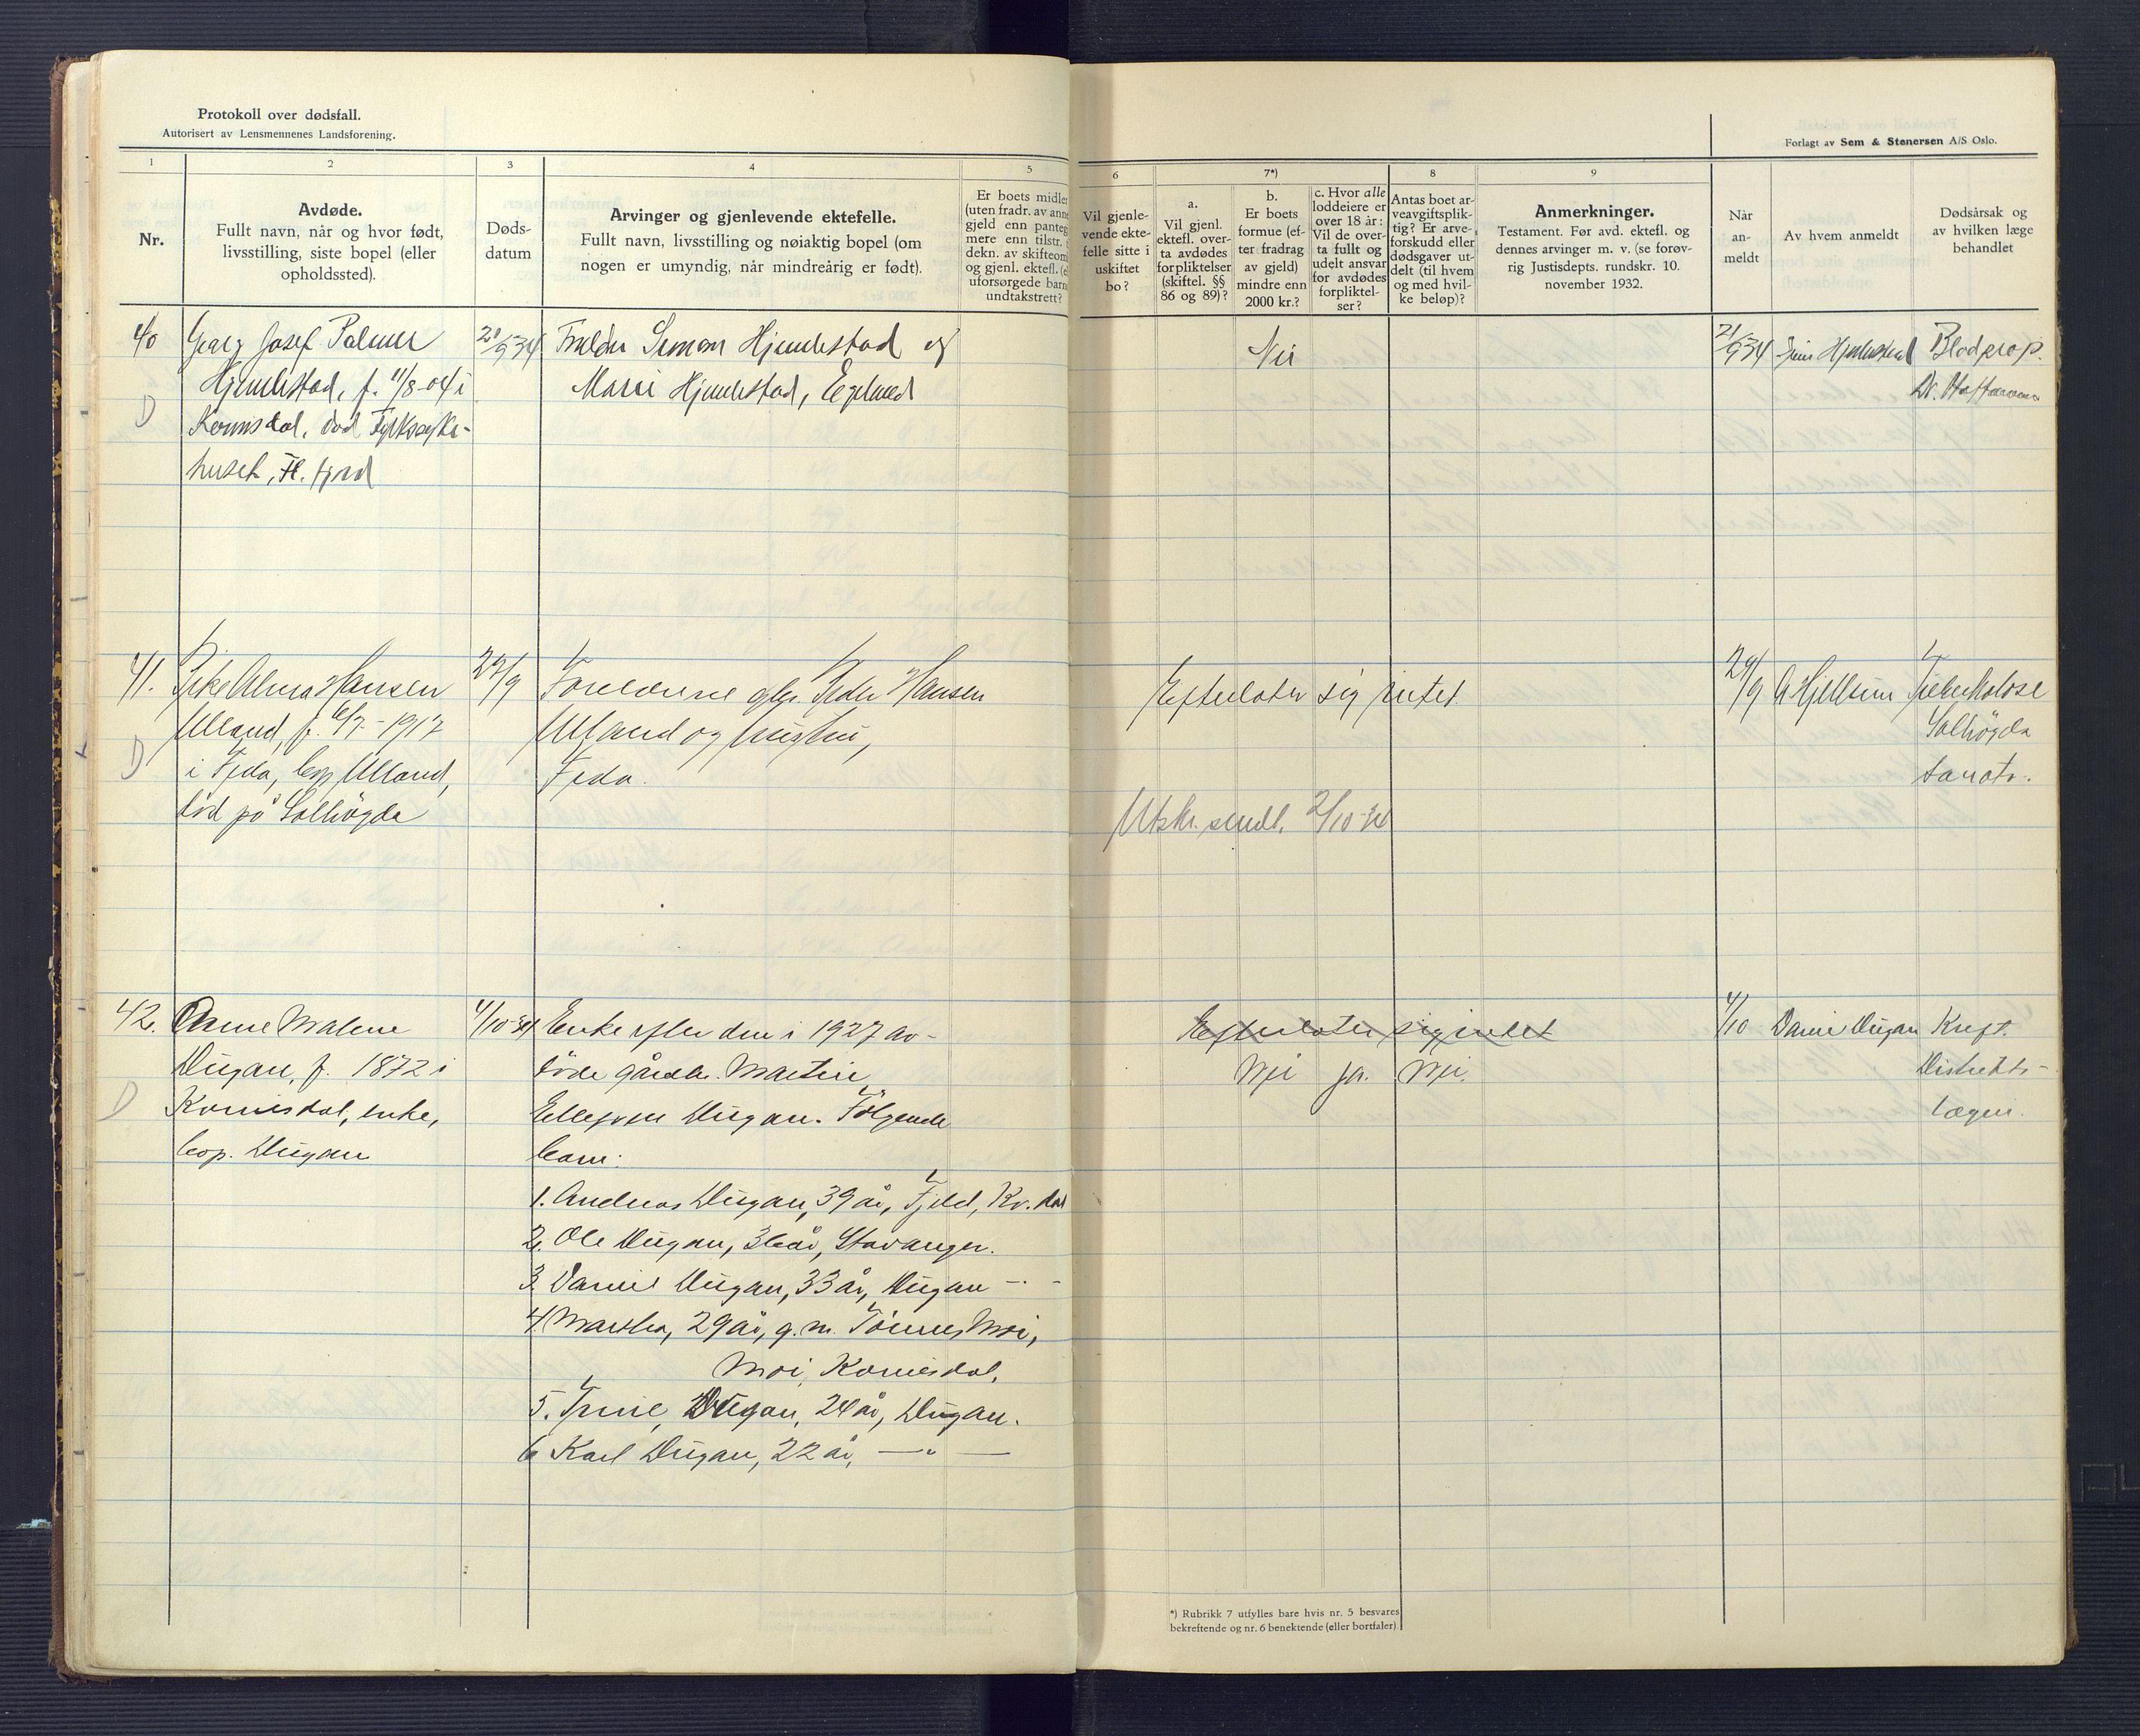 Protokoll over dødsfall.
Autorisert av Lensmennenes Landsforening.
Forlagt av Sem & Stenersen A/S Oslo.
1
2
3
4
5
6
7*)
8
9
Nr.
Avdøde.
Fullt navn, når og hvor født,
livsstilling, siste bopel (eller
opholdssted).
Døds-
datum
Arvinger og gjenlevende ektefelle.
Fullt navn, livsstilling og nøiaktig bopel (om
nogen er umyndig, når mindreårig er født).
Er boets midle
(uten fradr. av ann
gjeld enn panteg
mere enn tilstr.
dekn. av skifteom
og gjenl. ektefl. (e
uforsørgede barn
undtakstrett?
Vil gjenle-
vende ekte-
felle sitte i
uskiftet
bo?
a.
Vil gjenl.
ektefl. over-
ta avdødes
forpliktelser
(skiftel. §§
86 og 89)?
b.
Er boets
formue (ef-
ter fradrag
av gjeld)
mindre enn
2000 kr.?
c. Hvor alle
loddeiere er
over 18 år:
Vil de over-
ta fullt og
udelt ansvar
for avdødes
forpliktel-
ser?
Antas boet ar-
veavgiftsplik-
tig? Er arve-
forskudd eller
dødsgaver ut-
delt (til hvem
og med hvil-
ke beløp)?
Anmerkninger.
Testament. Før avd. ektefl. og
dennes arvinger m. v. (se forøv-
rig Justisdepts. rundskr. 10.
november 1932.
Når
an-
meldt
Av hvem anmeldt
Dødsårsak og
av hvilken læge
behandlet
40
Georg Josef Palmer
Hjemlestad, f. 11/8-04 i
Kvinesdal, død Fylkessyke-
huset, Fl. fjord
20/9-34
Foreldre Simon Hjemlestad og
Marie Hjemlestad, Egeland
Nei
21/9-34
Hjemlestad
Blodprop.
Dr. Hoffmann
D
41.
Alma Hansen
Ulland, f. 6/7-1917
i Feda, bop. Ulland,
død på Solhøgda
27/9
Foreldrene gbr. Peder Hansen
Ulland og hustru,
Feda.
Efterlater sig intet.
Utskr. sendt. 2/10-34
29/9
Tuberkulose
Solhøgda
sanato.
D
42.
Anne Malene
Dugan, f. 1872 i
Kvinesdal, enke,
bop. Dugan
4/10-34
Enke efter den i 1927 av-
døde gårdbr. Martin
Ellefsen Dugan. Følgende
barn:
1. Andreas Dugan, 39 år, Fjeld, Kv.dal
2. Ole Dugan, 36 år, Stavanger.
3. Daniel Dugan, 33 år, Dugan -"-
4. Martha, 29 år, g. m. Tønnes Moi,
Moi, Kvinesdal.
5. Trine Dugan, 24 år, Dugan.
6 Karl Dugan, 22 år, —"—
Efterlater sig intet
Nei ja. Nei.
4/10
Daniel Dugan
Kreft.
Distrikts-
lægen.
D
*) Rubrikk 7 utfylles bare hvis nr. 5 besvares
bekreftende og nr. 6 benektende (eller bortfaler).